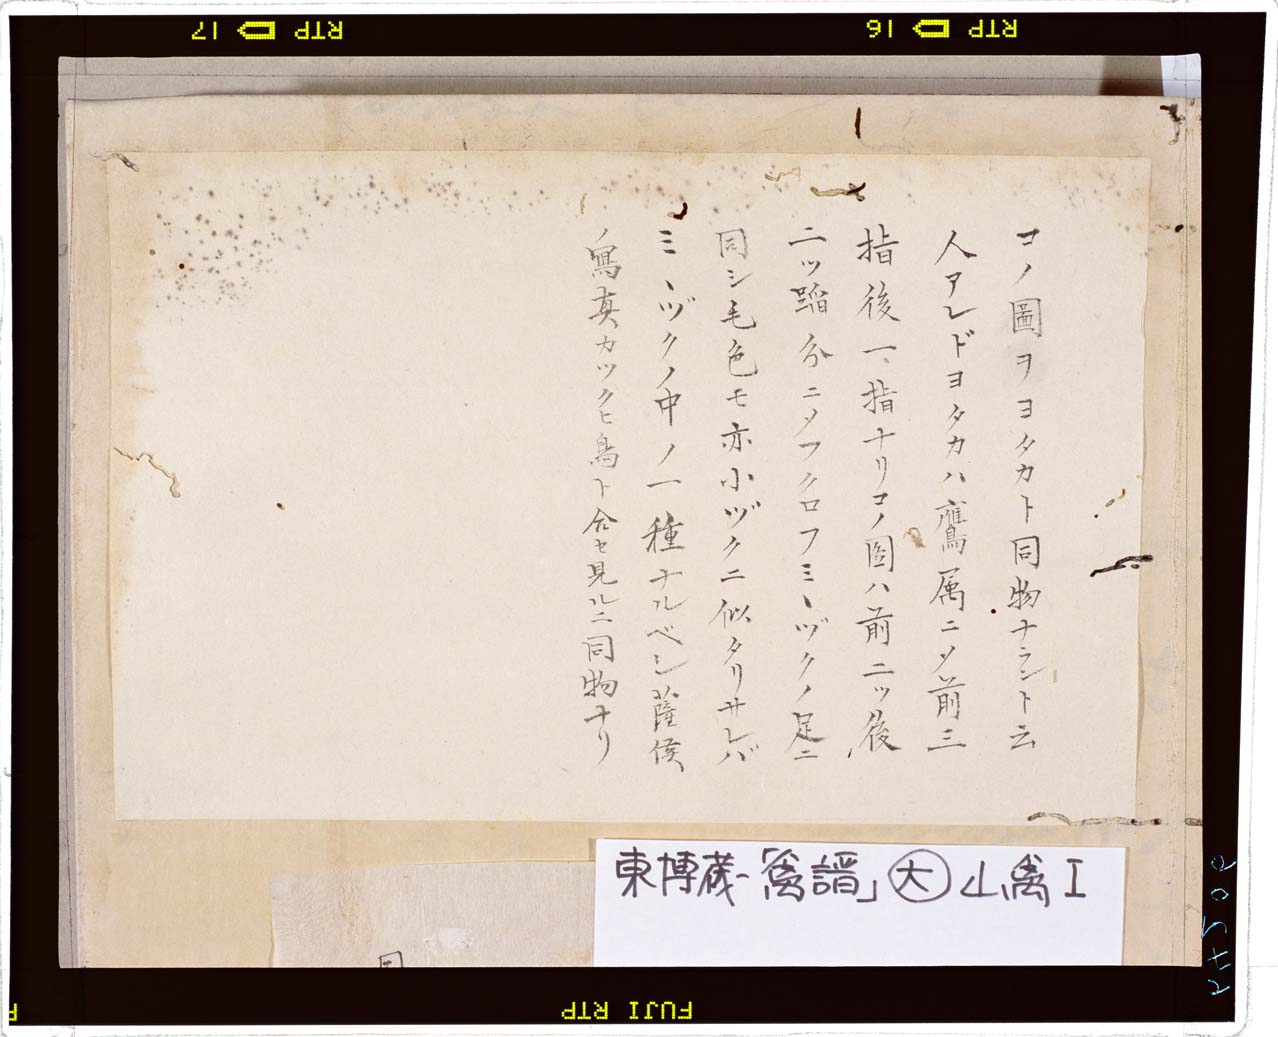 コノ圖ヲヨタカト同物ナラント云
人アレドヨタカハ鷹属ニソ前三
指後一指ナリコノ圖ハ前二ツ後
二ツ蹈分ニソフクロフミヽヅクノ足ニ
同シ毛色モ亦小ヅクニ似タリサレバ
ミヽヅクノ中ノ一種ナルベシ薩侯
ノ寫真カツクヒ鳥ト合セ見ルニ同物ナリ
東博蔵-「禽譜」大 山禽I
RTP 17
RTP 16
FUJI RTP